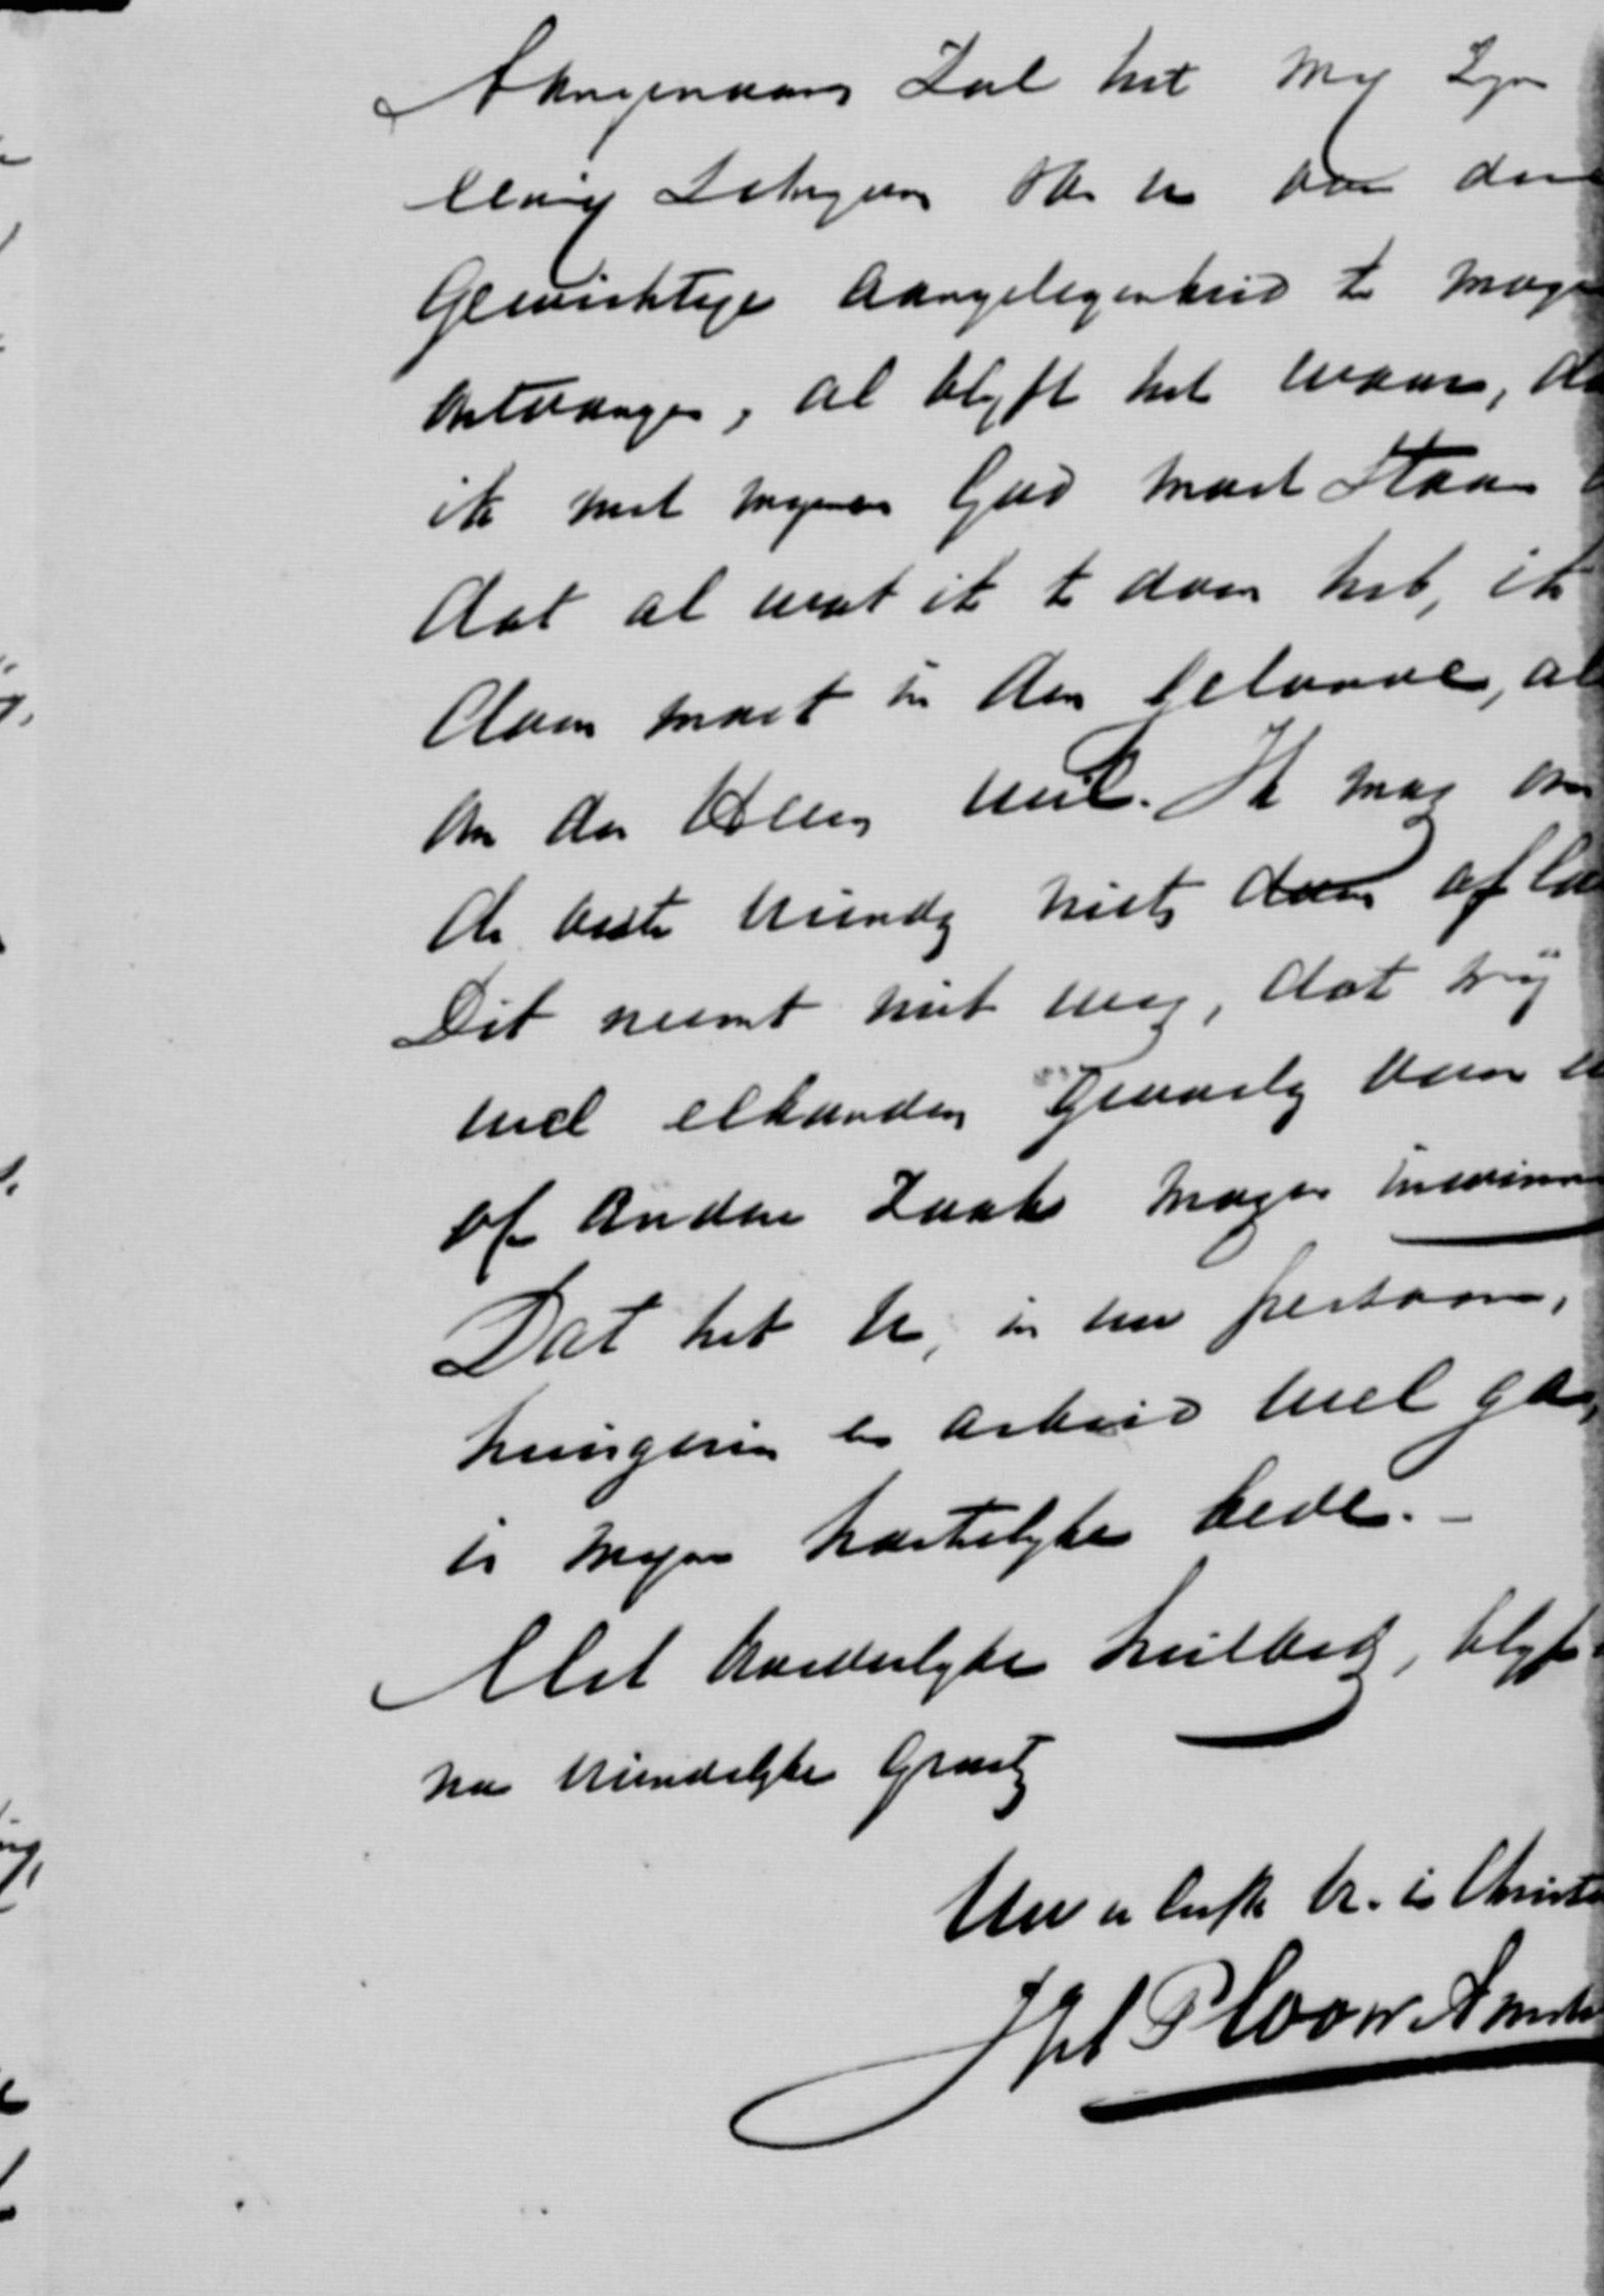 Aangenaam zal het my zyn
eenig schryven van u over deze
gewichtige aangelegenheid te moge
ontvangen, al blyft het waar, da
ik met mynen God moet staan
dat al wat ik te doen heb, ik
doen moet in den geloove, al
om des Heeren wil. Ik mag om
de beste vriend niets doen of la
Dit neemt niet weg, dat wij
wel elkanders over een
of andere zaak mogen inwinn
Dat het U, in uw persoon,
huisgezin en arbeid wel ga,
is myne hartelyke bede. -
Met broederlyke heilbede, blyf
na vriendelyke groete
Uw u liefh. br. in Christo
Ploos v. Amstel